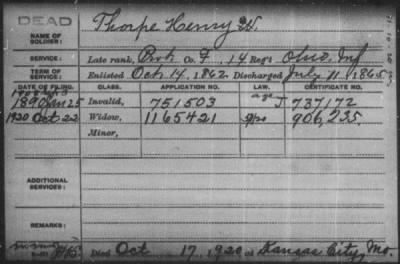 DEAD
NAME OF SOLDIER: Thorpe Henry W.
SERVICE: Late rank, Prvt. Co. F, 14 Reg't Ohio Inf
TERM OF SERVICE: Enlisted Oct 14, 1862 Discharged July 11 1865
DATE OF FILING. CLASS. APPLICATION NO. LAW. CERTIFICATE NO.
1890 Jan 25 Invalid, 751503 age J 737172
1920 Oct 22 Widow, 1165421 906,235.
Minor,
ADDITIONAL SERVICES:
REMARKS:
Died Oct 17, 1920, at Kansas City, Mo.